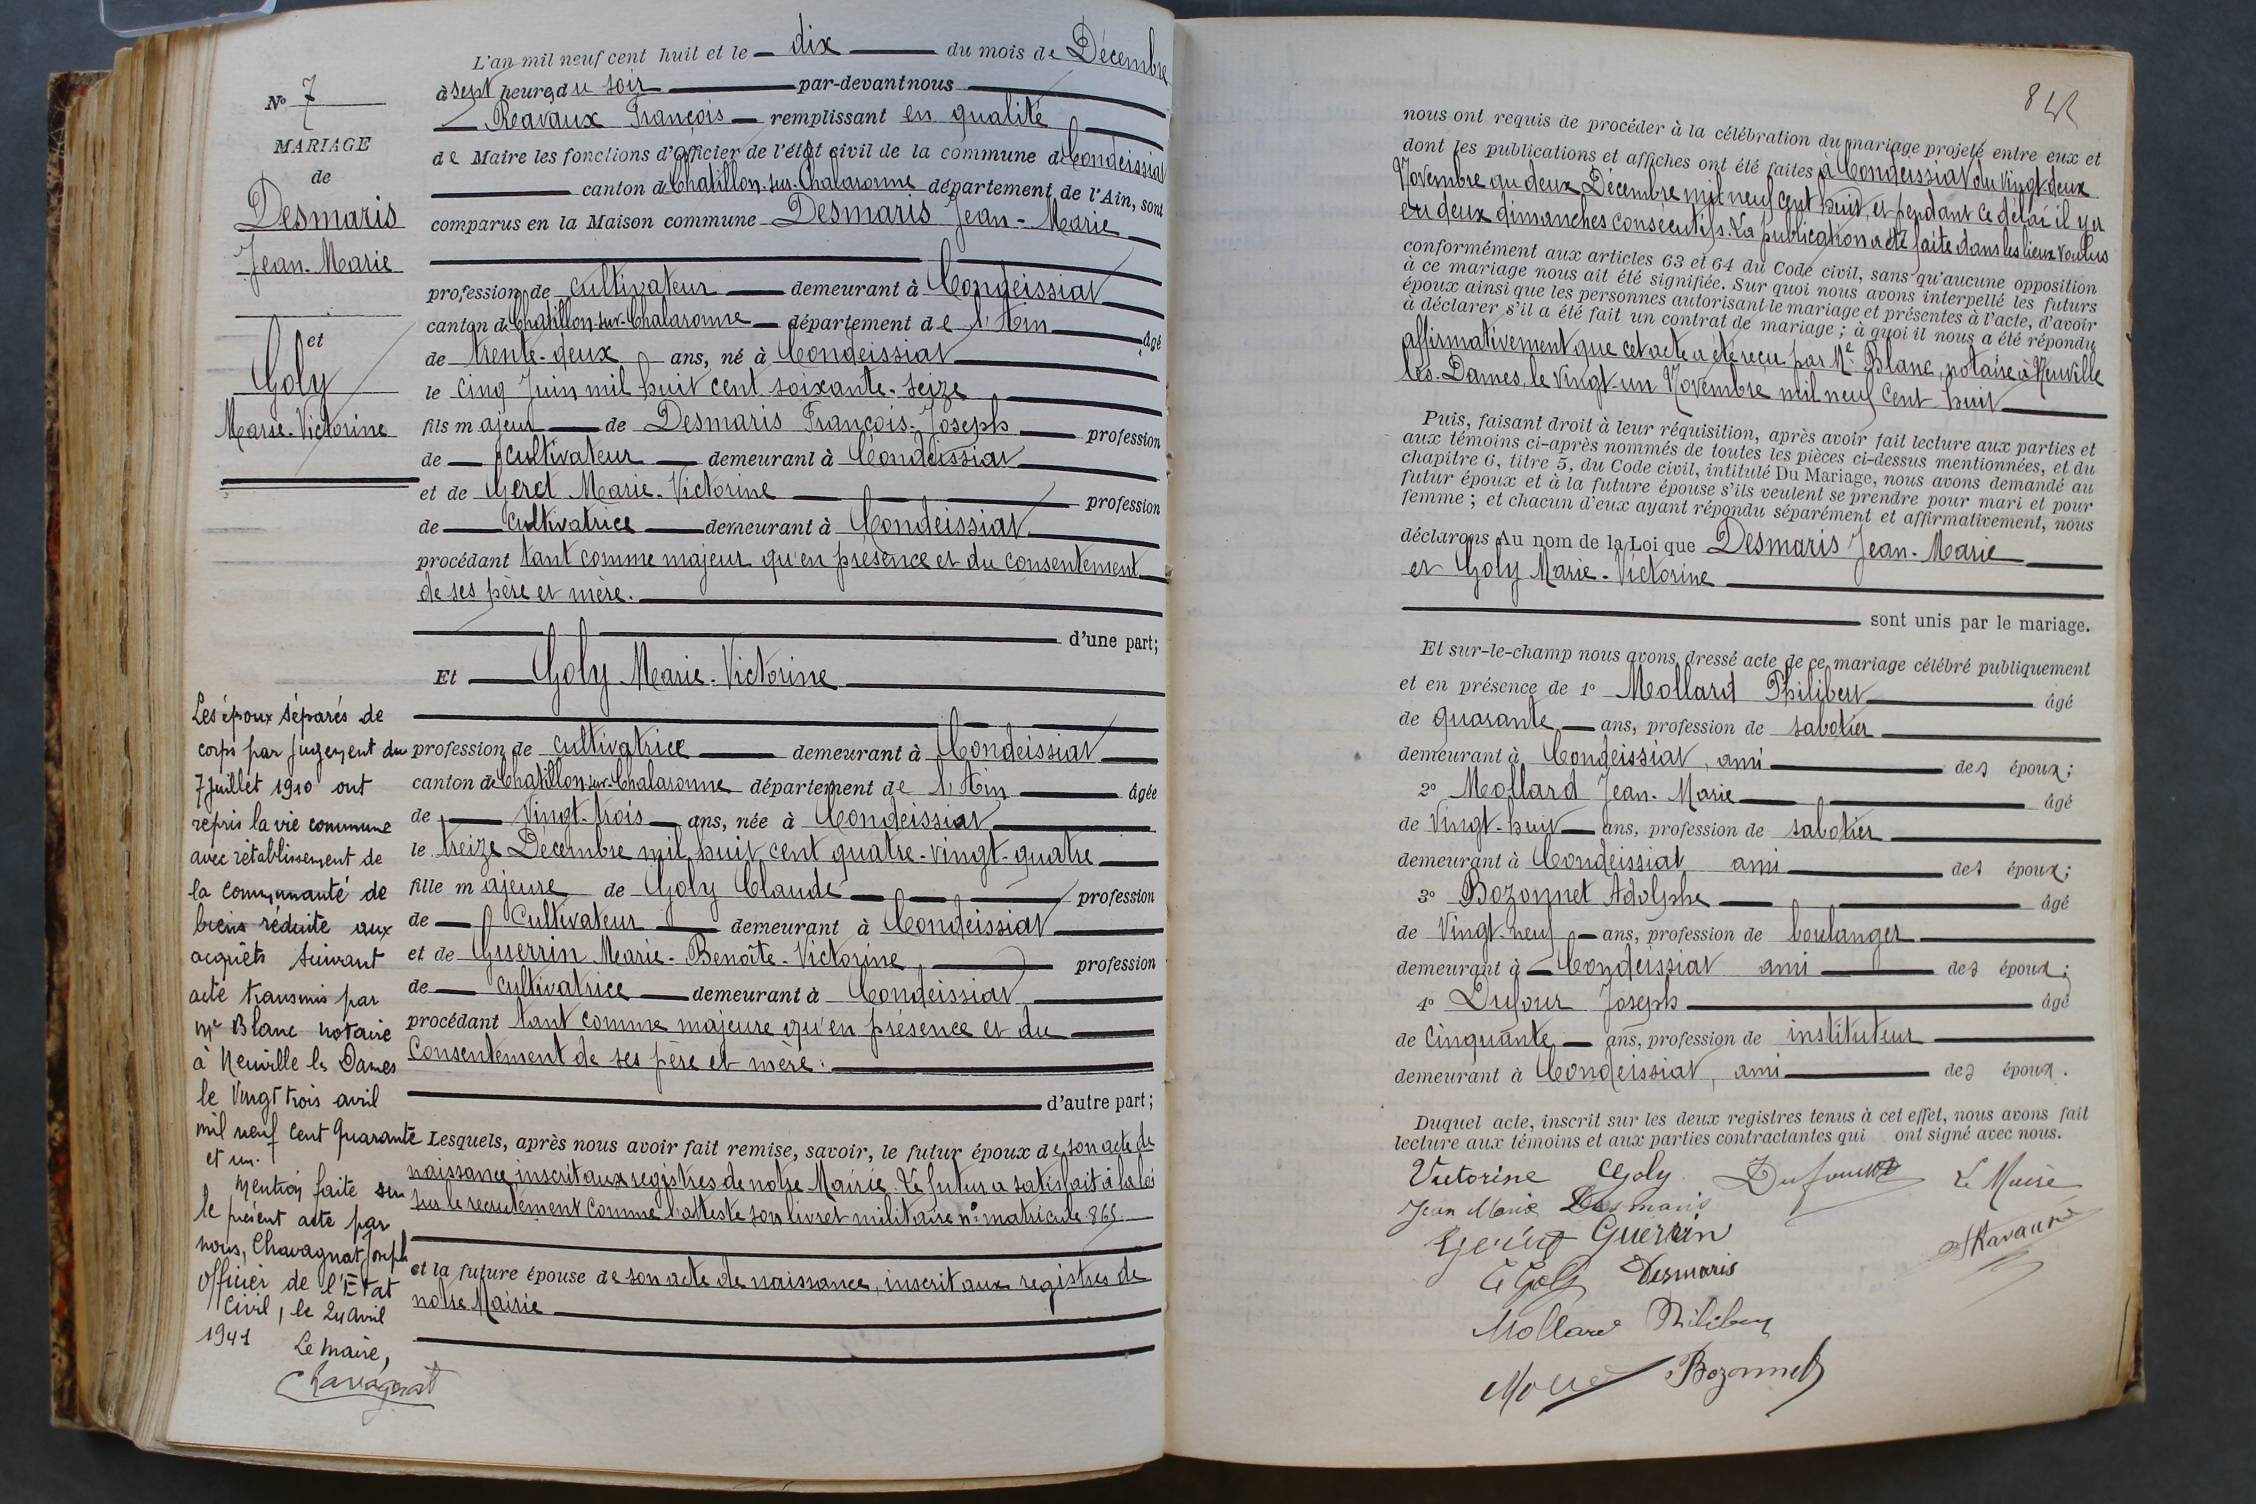 L'an mil neuf cent huit et le dix du mois de Décembre
à sept heures du soir par-devant nous
Ravaux François remplissant en qualité
de Maire les fonctions d'Officier de l'état civil de la commune de Condeissiat
canton de Chatillon-sur-Chalaronne département de l'Ain, sont
comparus en la Maison commune Desmaris Jean-Marie
profession de cultivateur demeurant à Condeissiat
canton de Chatillon-sur-Chalaronne département de l'Ain âgé
de trente-deux ans, né à Condeissiat
le cinq Juin mil huit cent soixante-seize
fils majeur de Desmaris François-Joseph profession
de cultivateur demeurant à Condeissiat
et de Geret Marie-Victorine profession
de cultivatrice demeurant à Condeissiat
procédant tant comme majeur qu'en présence et du consentement
de ses père et mère.
d'une part;
Et Goly Marie-Victorine
profession de cultivatrice demeurant à Condeissiat
canton de Chatillon-sur-Chalaronne département de l'Ain âgée
de vingt-trois ans, née à Condeissiat
le treize Décembre mil huit cent quatre-vingt-quatre
fille majeure de Goly Claude profession
de Cultivateur demeurant à Condeissiat
et de Guerrin Marie-Benoîte-Victorine profession
de cultivatrice demeurant à Condeissiat
procédant tant comme majeure qu'en présence et du
Consentement de ses père et mère.
d'autre part;
Lesquels, après nous avoir fait remise, savoir, le futur époux de son acte de
naissance inscrit aux registres de notre Mairie. Le futur a satisfait à la loi
sur le recrutement comme l'atteste son livret militaire n° matricule 865.
et la future épouse de son acte de naissance, inscrit aux registres de
notre Mairie
N° 7
MARIAGE
de
Desmaris
Jean-Marie
et
Goly
Marie-Victorine
Les époux séparés de
corps par jugement du
7 juillet 1910 ont
repris la vie commune
avec rétablissement de
la communauté de
biens réduite aux
acquêts suivant
acte transmis par
Me Blanc notaire
à Neuville les Dames
le vingt trois avril
mil neuf cent quarante
et un.
Mention faite sur
le présent acte par
nous, Chavagnat Joseph
officier de l'Etat
civil, le 24 avril
1941
Le Maire,
Chavagnat
842
nous ont requis de procéder à la célébration du mariage projeté entre eux et
dont les publications et affiches ont été faites à Condeissiat du vingt-deux
Novembre au deux Décembre mil neuf cent huit, et pendant ce délai il y a
eu deux dimanches consécutifs. La publication a été faite dans les lieux voulus
conformément aux articles 63 et 64 du Code civil, sans qu'aucune opposition
à ce mariage nous ait été signifiée. Sur quoi nous avons interpellé les futurs
époux ainsi que les personnes autorisant le mariage et présentes à l'acte, d'avoir
à déclarer s'il a été fait un contrat de mariage; à quoi il nous a été répondu
affirmativement que cet acte a été reçu par Me Blanc, notaire à Neuville
les-Dames, le vingt-un Novembre mil neuf cent huit
Puis, faisant droit à leur réquisition, après avoir fait lecture aux parties et
aux témoins ci-après nommés de toutes les pièces ci-dessus mentionnées, et du
chapitre 6, titre 5, du Code civil, intitulé Du Mariage, nous avons demandé au
futur époux et à la future épouse s'ils veulent se prendre pour mari et pour
femme; et chacun d'eux ayant répondu séparément et affirmativement, nous
déclarons Au nom de la Loi que Desmaris Jean-Marie
et Goly Marie-Victorine
sont unis par le mariage.
Et sur-le-champ nous avons dressé acte de ce mariage célébré publiquement
et en présence de 1° Mollard Philibert âgé
de quarante ans, profession de sabotier
demeurant à Condeissiat, ami des époux;
2° Mollard Jean-Marie âgé
de vingt-huit ans, profession de sabotier
demeurant à Condeissiat ami des époux;
3° Bozonnet Adolphe âgé
de vingt-neuf ans, profession de boulanger
demeurant à Condeissiat ami des époux;
4° Dufour Joseph âgé
de cinquante ans, profession de instituteur
demeurant à Condeissiat, ami des époux.
Duquel acte, inscrit sur les deux registres tenus à cet effet, nous avons fait
lecture aux témoins et aux parties contractantes qui ont signé avec nous.
Victorine Goly Dufour Le Maire
Jean Marie Desmaris
Guerrin
C Goly Desmaris
Mollard Philibert
Bozonnet